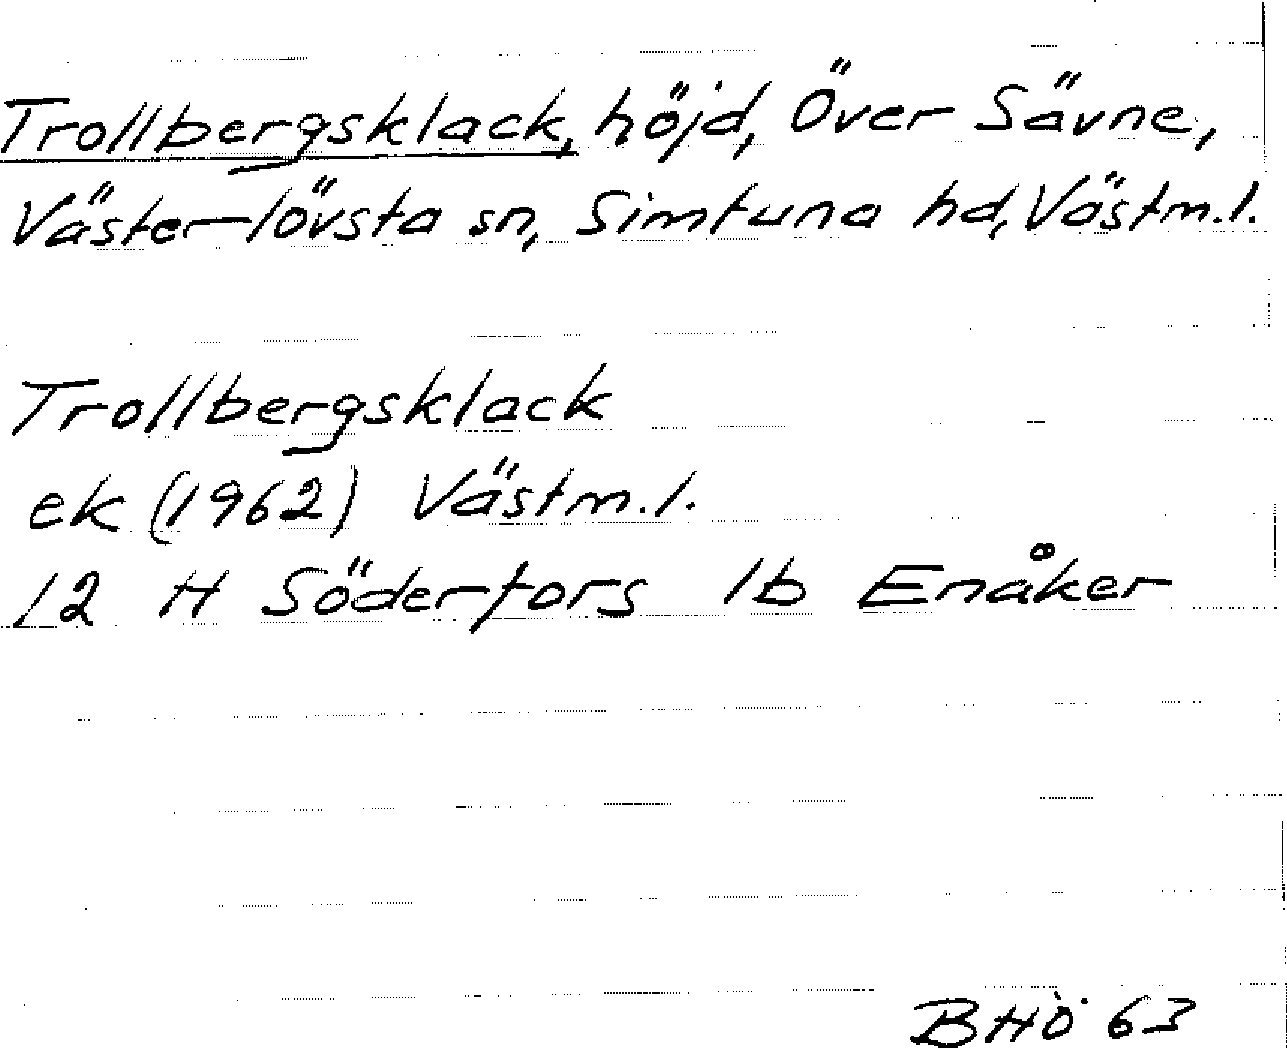 Trollbergsklack, höjd, Över Sävne,
Västerlövsta sn, Simtuna hd, Västm.l.
Trollbergsklack
ek (1962) Västm.l.
12 H Söderfors 1b Enåker
BHÖ 63